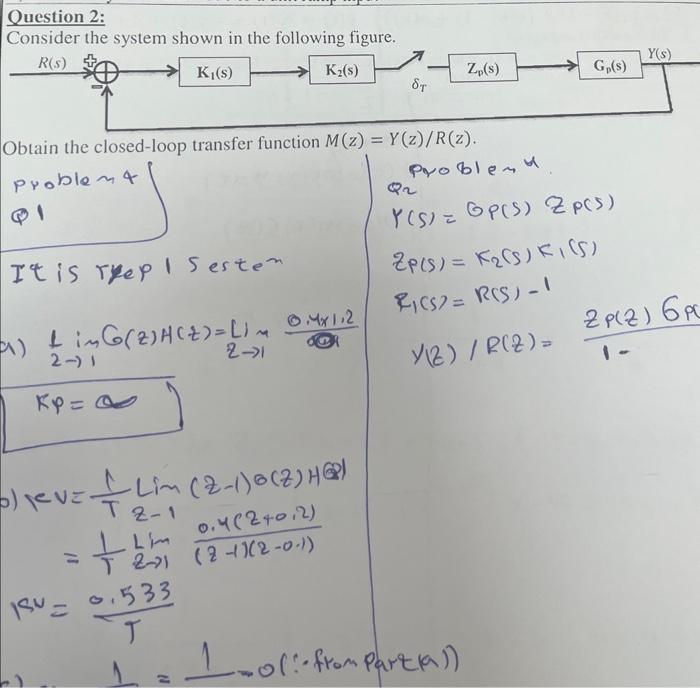 Question 2:
Consider the system shown in the following figure.
R(s)
K₁(s)
K₂(s)
δT
Zₚ(s)
Gₚ(s)
Y(s)
Obtain the closed-loop transfer function M(z) = Y(z)/R(z).
Problem 4
Q1
It is type 1 Sestem
a) Lim G(z)H(z) = Lim 0.4x1.2
z→1 z→1
Kp = ∞
b) KV = 1/T Lim (z-1)G(z)H(z)
z-1
= 1/T Lim 0.4(z+0.2) / (z-1)(z-0.1)
z→1
KV = 0.533 / T
1 = 1 = 0 (∵ from part (a))
Problem 4.
Q2
Y(s) = GP(s) ZP(s)
ZP(s) = K2(s) K1(s)
R(s) - 1
Y(z) / R(z) = ZP(z) GP(
1 -